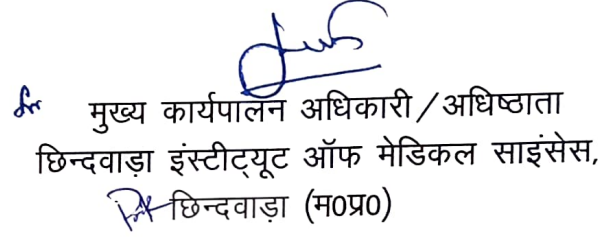 for मुख्य कार्यपालन अधिकारी/अधिष्ठाता
छिन्दवाड़ा इंस्टीट्यूट ऑफ मेडिकल साइंसेस,
छिन्दवाड़ा (म०प्र०)